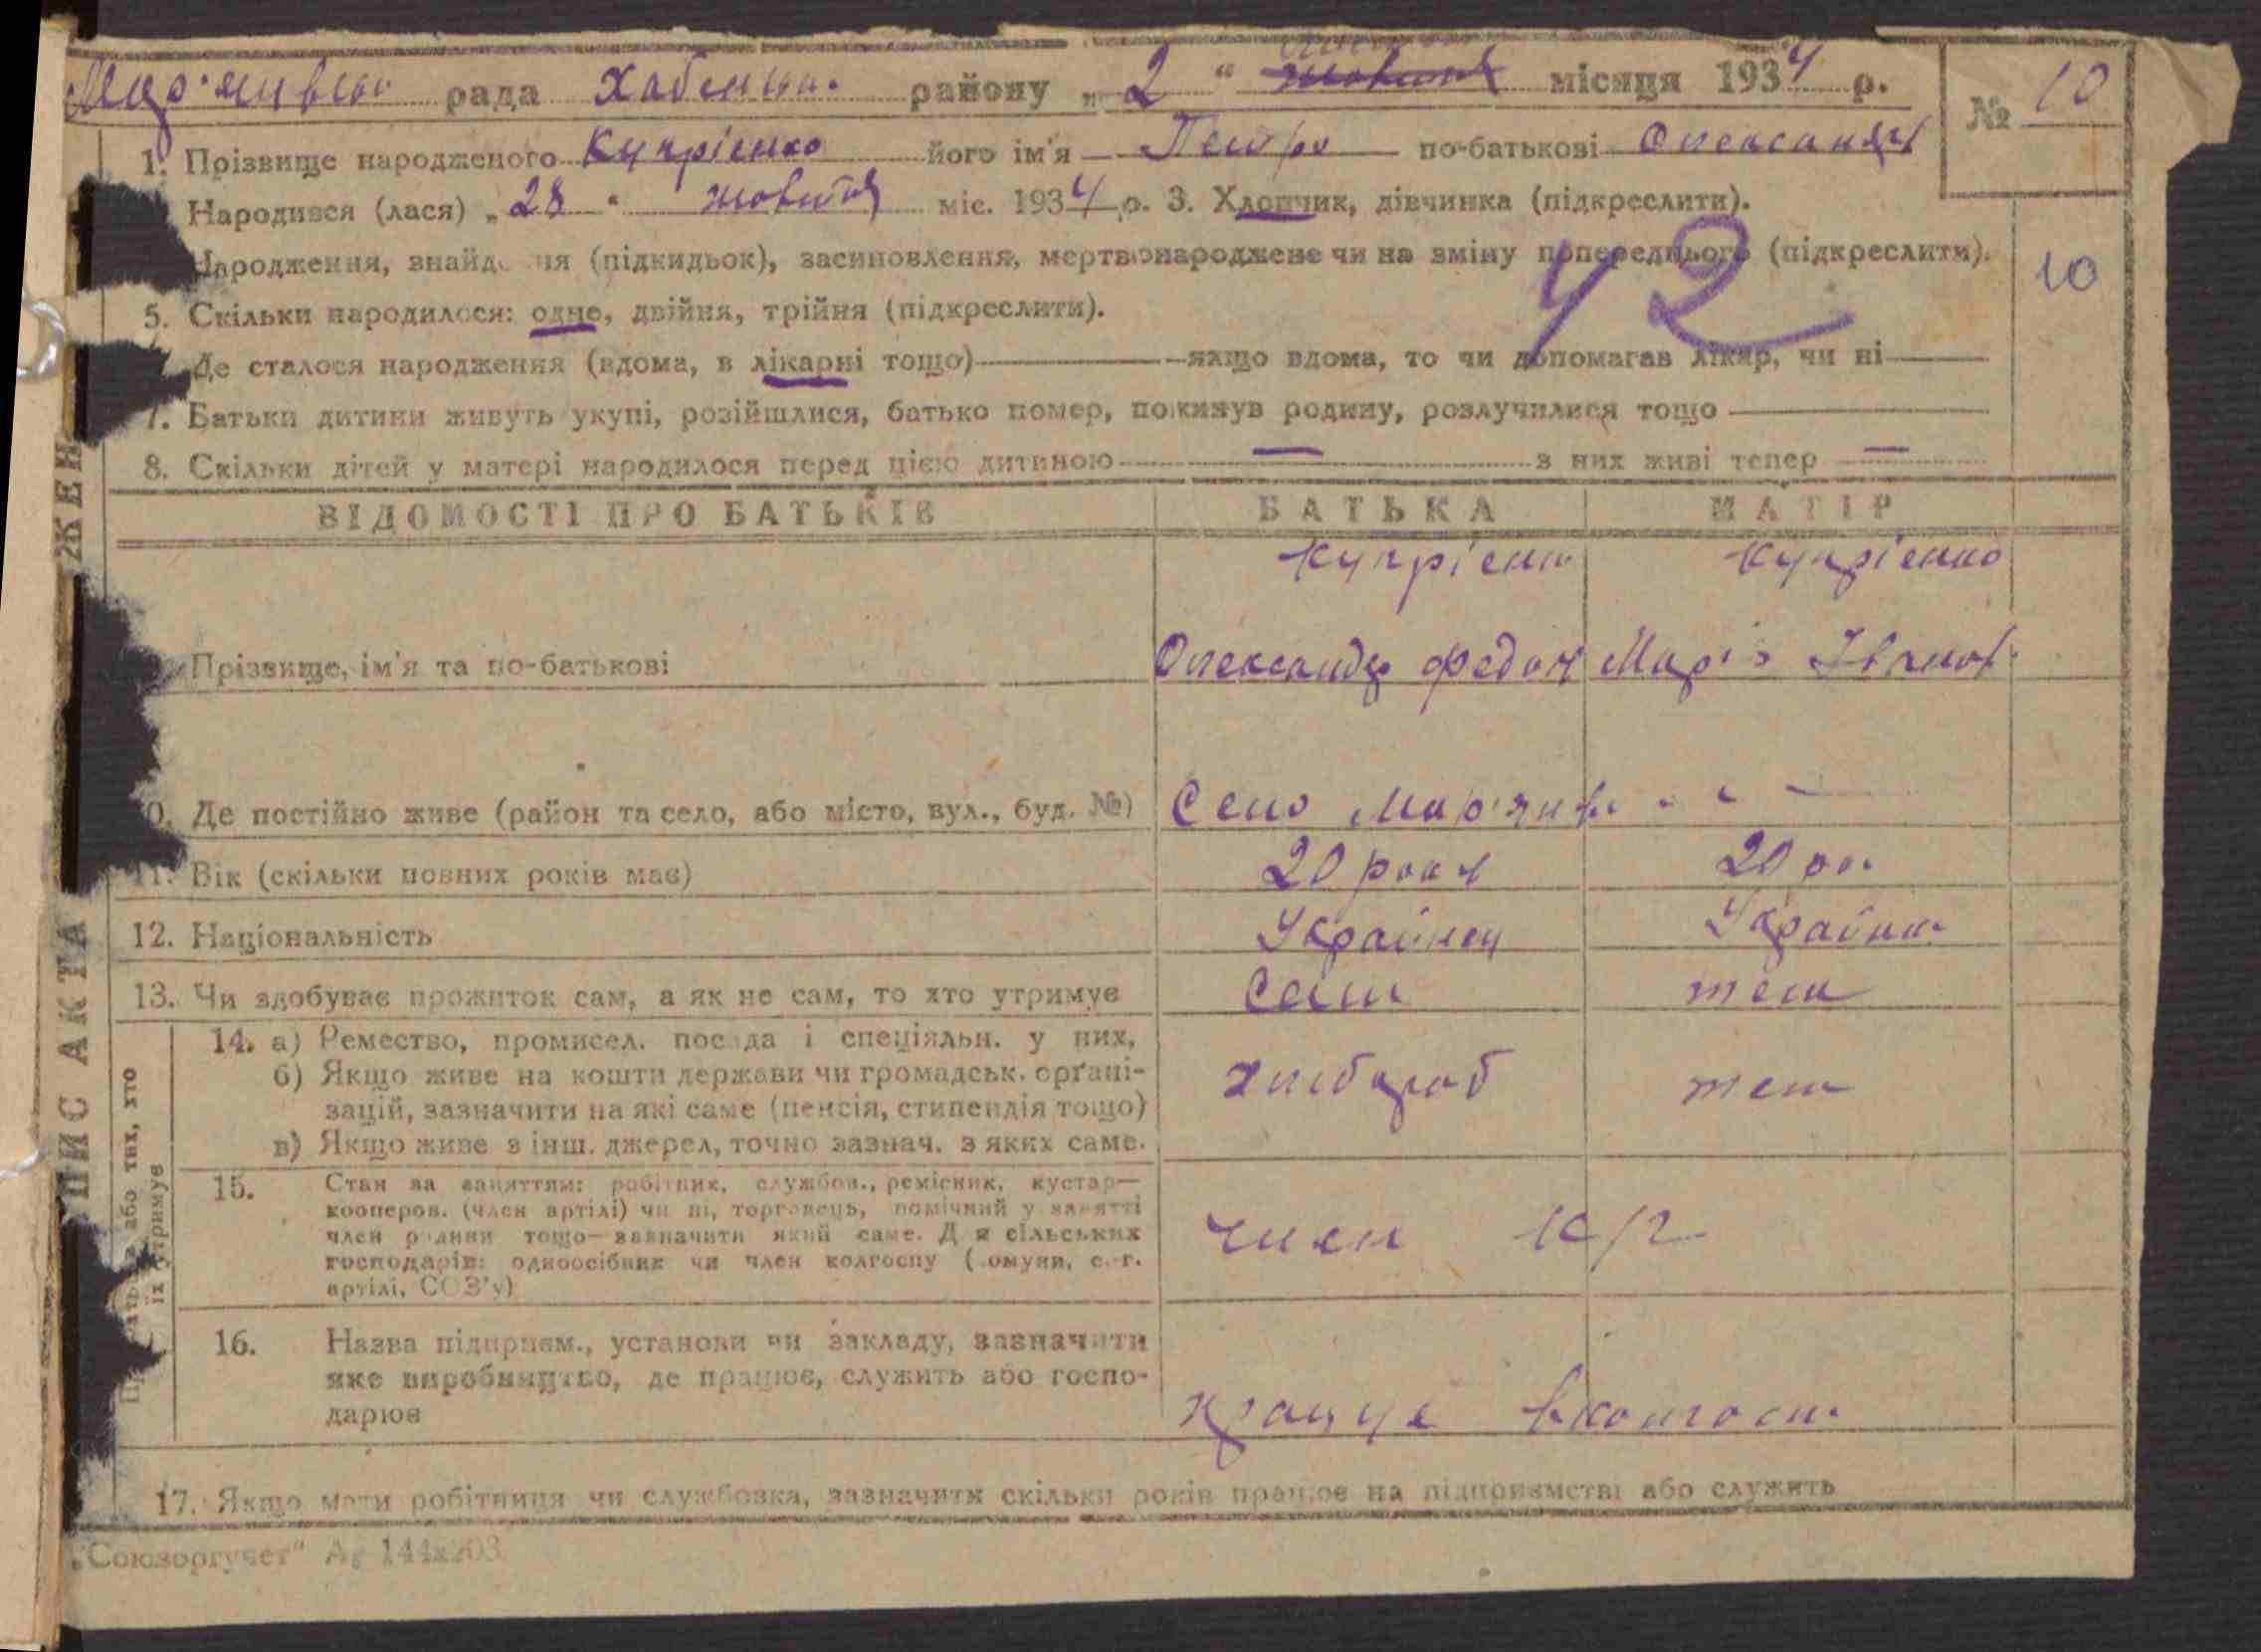 Мар'янівськ рада Хабенськ. району „2“ листоп жовтня місяця 1934 р.
№ 10
1. Прізвище народженого Купрієнко його ім'я Петро по-батькові Олександр
Народився (лася) „28“ жовтня міс. 1934 р. 3. Хлопчик, дівчинка (підкреслити).
Народження, знайд ня (підкидьок), засиновлення, мертвонароджене чи на зміну попереднього (підкреслити).
42
10
5. Скільки народилося: одне, двійня, трійня (підкреслити).
Де сталося народження (вдома, в лікарні тощо) — якщо вдома, то чи допомагав лікар, чи ні —
7. Батьки дитини живуть укупі, розійшлися, батько помер, покинув родину, розлучилися тощо —
8. Скільки дітей у матері народилося перед цією дитиною — з них живі тепер —
ВІДОМОСТІ ПРО БАТЬКІВ БАТЬКА МАТІР
Купрієнко Купрієнко
Прізвище, ім'я та по-батькові Олександр Федот Марія Іванов.
0. Де постійно живе (район та село, або місто, вул., буд. №) Село Мар'янів. - " -
11. Вік (скільки повних років має) 20 років 20 рок
12. Національність Українец Українк
13. Чи здобуває прожиток сам, а як не сам, то хто утримує Сам теж
14. а) Ремество, промисел. посада і спеціяльн. у них,
б) Якщо живе на кошти держави чи громадськ. органі-
зацій, зазначити на які саме (пенсія, стипендія тощо) хлібороб теж
в) Якщо живе з інш. джерел, точно зазнач. з яких саме.
15. Стан за заняттям: робітник, службов., ремісник, кустар—
кооперов. (член артілі) чи ні, торговець, помічний у занятті
член родини тощо—зазначити який саме. Д я сільських член к/г
господарів: одноосібник чи член колгоспу ( омуни, с.-г.
артілі, СОЗ'у)
16. Назва підприєм., установи чи закладу, зазначити
яке виробництво, де працює, служить або госпо-
дарює працює в колгосп.
17. Якщо мати робітниця чи службовка, зазначити скільки років працює на підприємстві або служить
„Союзоргучет“ А₅ 144х203
ПИС АКТА
ЖЕН
або тих, хто
їх утримує